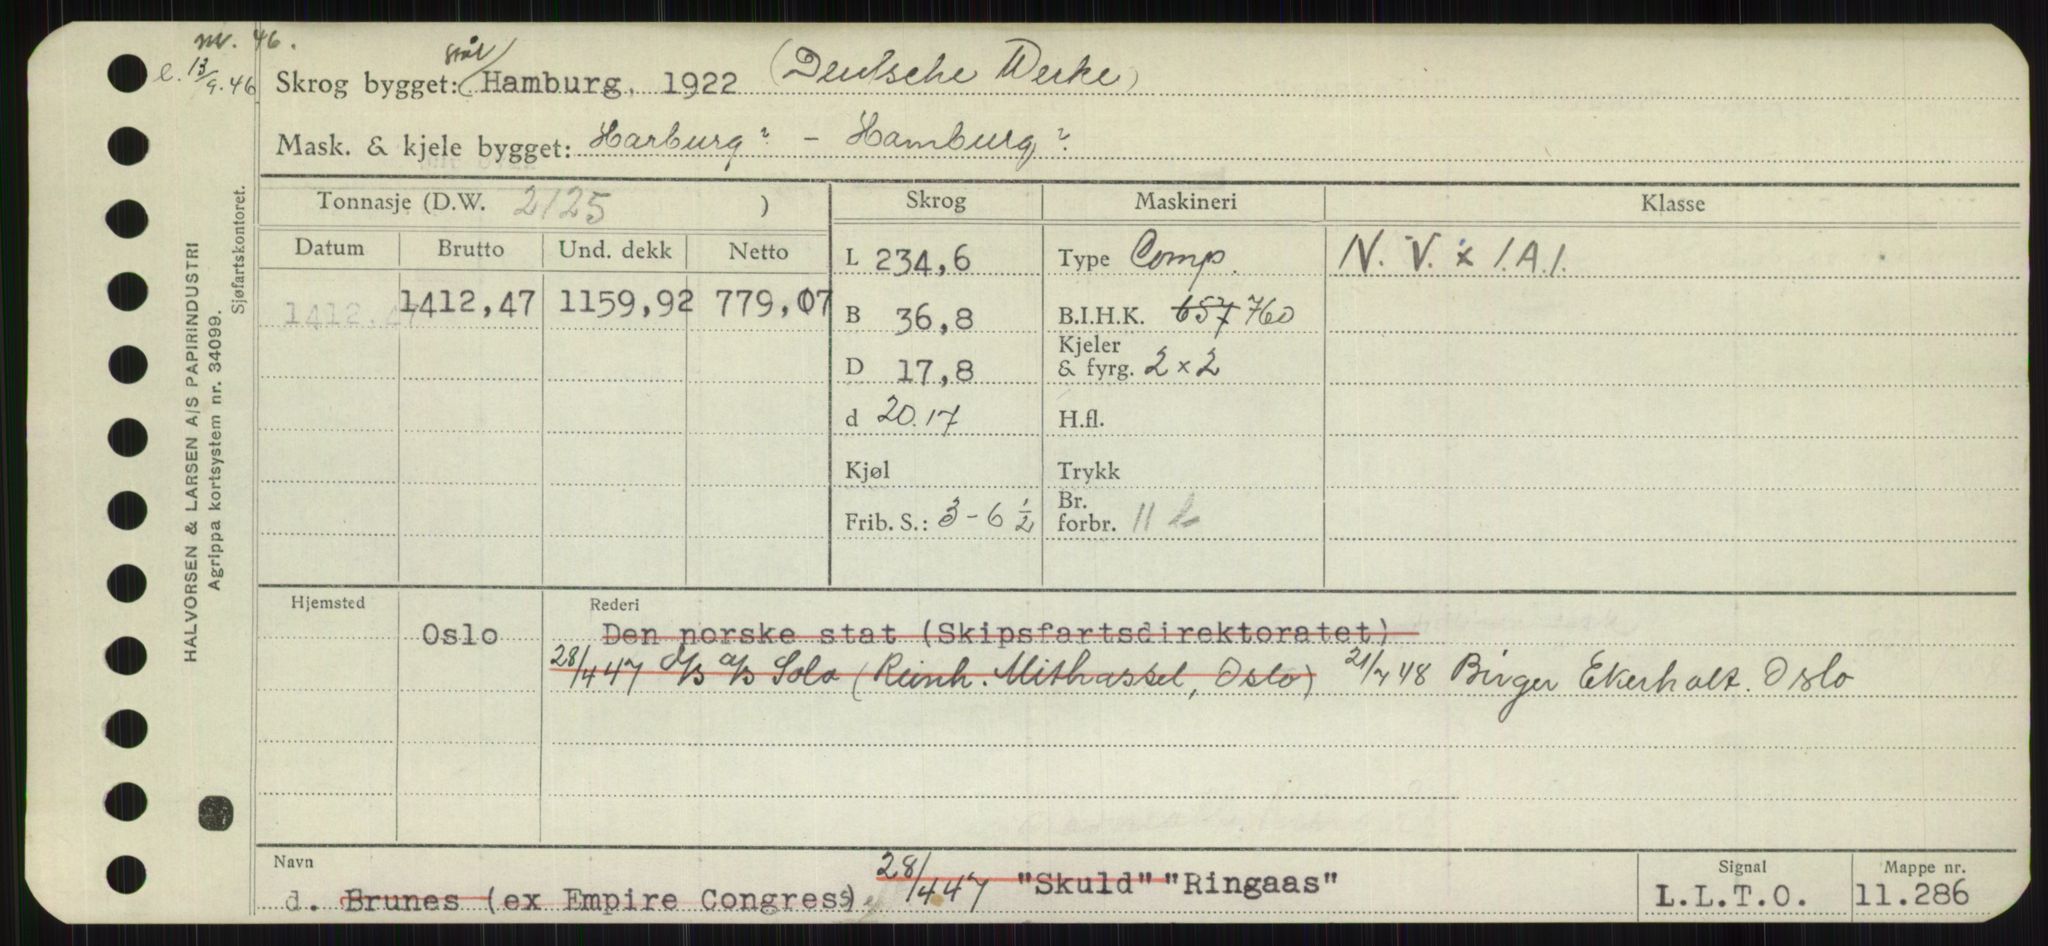 nr. 46.
e. 13/9.46
HALVORSEN & LARSEN A/S PAPIRINDUSTRI
Agrippa kortsystem nr. 34099.
Sjøfartskontoret.
stål
Skrog bygget: Hamburg, 1922 (Deutsche Werke)
Mask. & kjele bygget: Harburg? - Hamburg?
Tonnasje (D.W. 2125 ) Skrog Maskineri Klasse
Datum Brutto Und. dekk Netto L 234,6 Type Comp. N. V. x 1.A.1.
1412,47 1412,47 1159,92 779,07 B 36,8 B.I.H.K. 657 760
D 17,8 Kjeler & fyrg. 2 x 2
d 20.17 H.fl.
Kjøl Trykk
Frib. S.: 3 - 6 1/2 Br. forbr. 11
Hjemsted Rederi
Oslo Den norske stat (Skipsfartsdirektoratet)
28/4 47 D/S A/S Solo (Reinh. Mithassel, Oslo) 21/7 48 Birger Ekerholt. Oslo
Navn Signal Mappe nr.
d. Brunes (ex Empire Congress) 28/4 47 "Skuld" "Ringaas" L.L.T.O. 11.286